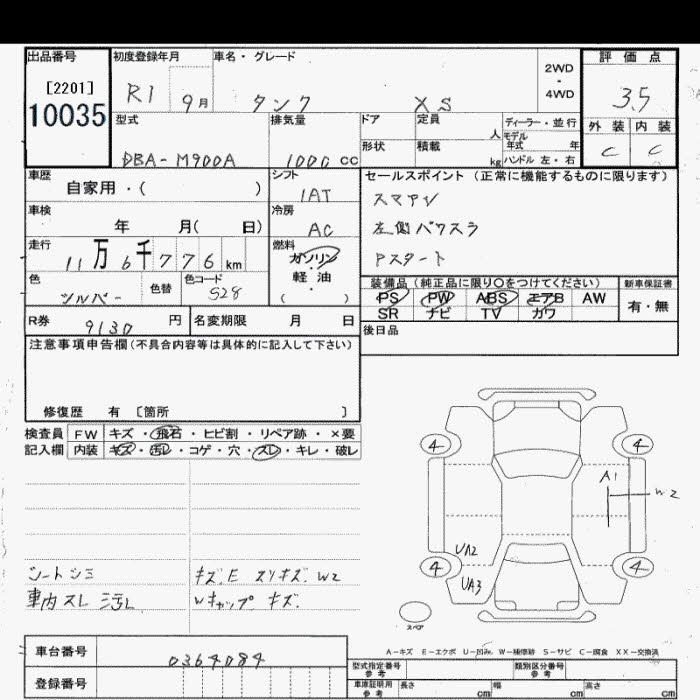 出品番号 初度登録年月 車名・グレード 2WD ・ 4WD 評価点
[2201] R1 9月 タンク XS 3.5
10035
型式 排気量 ドア 定員 人 ディーラー・並行 外装 内装
DBA-M900A 1000 cc 形状 積載 kg モデル年式 年 ハンドル 左・右 C C
車歴 自家用・( ) シフト 1AT セールスポイント (正常に機能するものに限ります)
車検 年 月( 日) 冷房 AC スマアシ
左側パワスラ
走行 11万6千776km 燃料 ガソリン・軽油 ( ) Pスタート
色 シルバー 色替 色コード S28 装備品(純正品に限り○をつけてください) 新車保証書
PS PW ABS エアB AW 有・無
SR ナビ TV ガワ
R券 9130円 名変期限 月 日 後日品
注意事項申告欄(不具合内容等は具体的に記入して下さい)
修復歴 有 [箇所 ]
検査員 FW キズ・飛石・ヒビ割・リペア跡・×要
記入欄 内装 キズ・汚レ・コゲ・穴・スレ・キレ・破レ
4 4
A1 W2
UA2
4 4
UA3
シートシミ キズ.E スリキズ.W2
車内スレ汚レ Wキャップ キズ.
スペア
A-キズ E-エクボ U-凹み W-補修跡 S-サビ C-腐食 XX-交換済
車台番号 0364084 型式指定番号 参考 類別区分番号 参考
登録番号 車庫証明用 参考 長さ cm 幅 cm 高さ cm